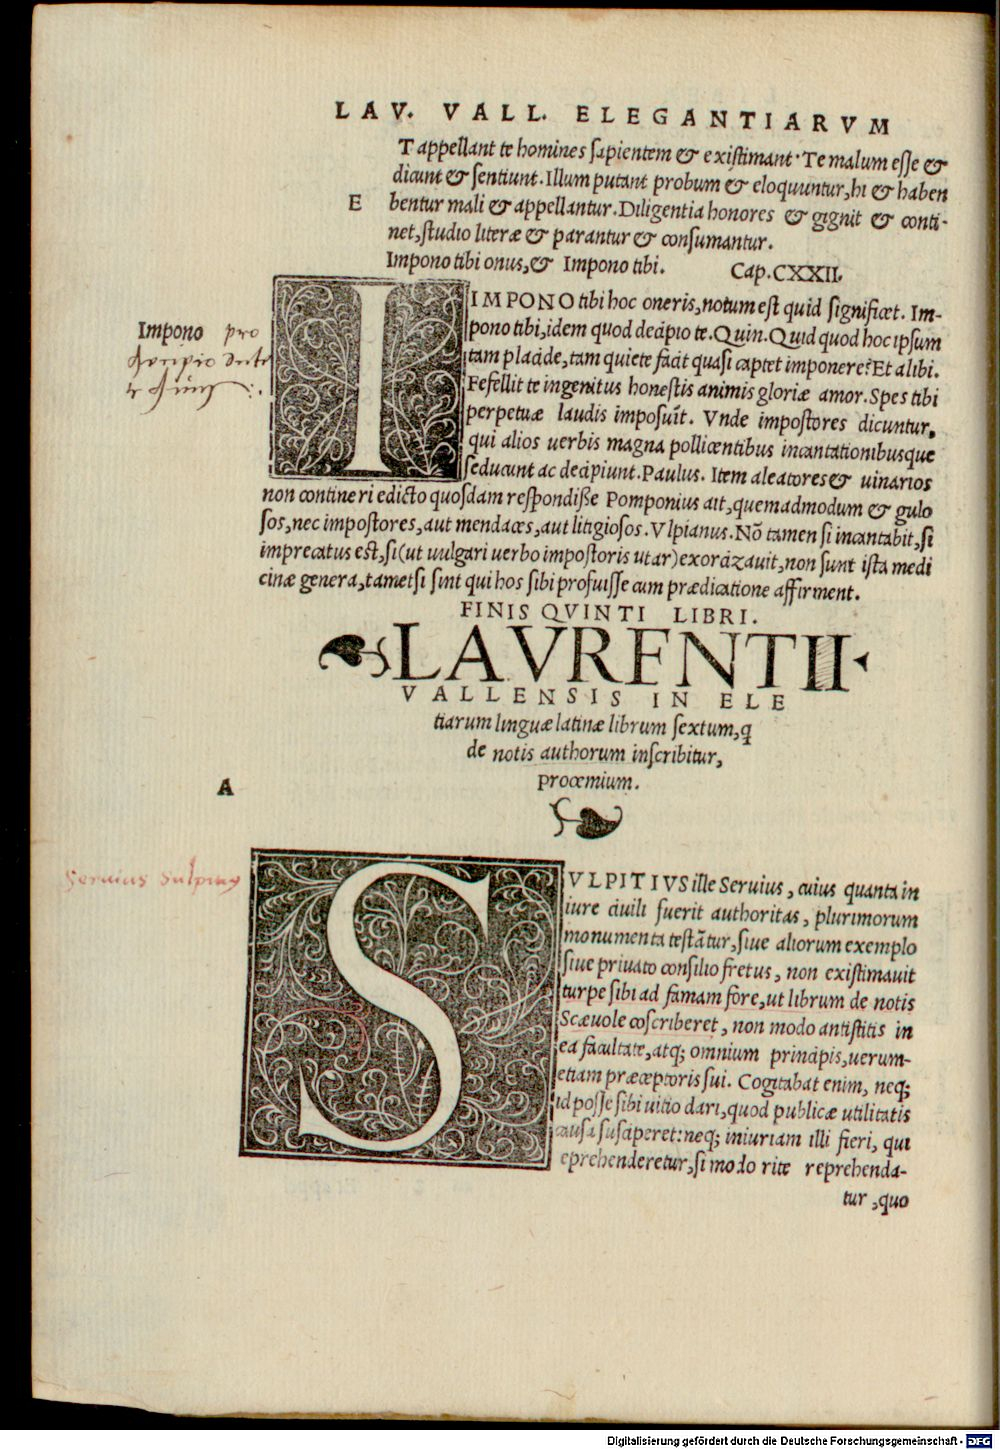 LAV. VALL. ELEGANTIARVM
T appellant te homines sapientem & existimant. Te malum esse &
dicunt & sentiunt. Illum putant probum & eloquuntur, hi & haben
E bentur mali & appellantur. Diligentia honores & gignit & conti-
net, studio literæ & parantur & consumantur.
Impono tibi onus, & Impono tibi. Cap. CXXII.
IMPONO tibi hoc oneris, notum est quid significet. Im-
pono tibi, idem quod decipio te. Quin. Quid quod hoc ipsum
tam placide, tam quiete facit quasi captet imponere? Et alibi.
Impono pro
Fefellit te ingenitus honestis animis gloriæ amor. Spes tibi
perpetuæ laudis imposuĩt. Vnde impostores dicuntur,
qui alios uerbis magna pollicentibus incantationibusque
seducunt ac decipiunt. Paulus. Item aleatores & uinarios
non contineri edicto quosdam respondisse Pomponius ait, quemadmodum & gulo
sos, nec impostores, aut mendaces, aut litigiosos. Vlpianus. Nõ tamen si incantabit, si
imprecatus est, si (ut uulgari uerbo impostoris utar) exorcizauit, non sunt ista medi
cinæ genera, tametsi sint qui hos sibi profuisse cum prædicatione affirment.
FINIS QVINTI LIBRI.
LAVRENTII
VALLENSIS IN ELE
tiarum linguæ latinæ librum sextum, q
de notis authorum inscribitur,
prooemium.
A
Seruius Sulpitius
SVLPITIVS ille Seruius, cuius quanta in
iure ciuili fuerit authoritas, plurimorum
monumenta testãtur, siue aliorum exemplo
siue priuato consilio fretus, non existimauit
turpe sibi ad famam fore, ut librum de notis
Scæuole coscriberet, non modo antistitis in
ea facultate, atq; omnium principis, uerum-
etiam præceptoris sui. Cogitabat enim, neq;
id posse sibi uitio dari, quod publicæ utilitatis
causa susciperet: neq; iniuriam illi fieri, qui
eprehenderetur, si modo rite reprehenda-
tur, quo
Digitalisierung gefördert durch die Deutsche Forschungsgemeinschaft - DFG